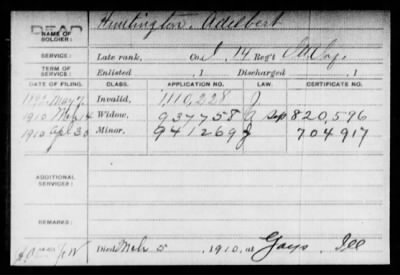 DEAD
NAME OF SOLDIER: Huntington, Adelbert
SERVICE: Late rank, Co. I, 14 Reg't Ill Inf.
TERM OF SERVICE: Enlisted , 1 Discharged , 1
DATE OF FILING. CLASS. APPLICATION NO. LAW. CERTIFICATE NO.
1892 May Invalid, 1,110,228
1910 Mch 14 Widow, 937758 Sep 820,596
1910 Apl 30 Minor, 941269 704917
ADDITIONAL SERVICES:
REMARKS:
Died Mch 5, 1910, at Gays, Ill